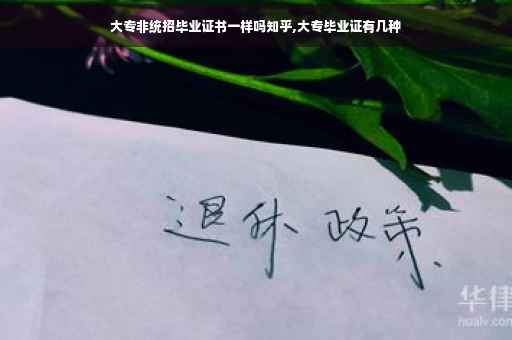 大专非统招毕业证书一样吗知乎,大专毕业证有几种
退休 政策
华律
hualv.com